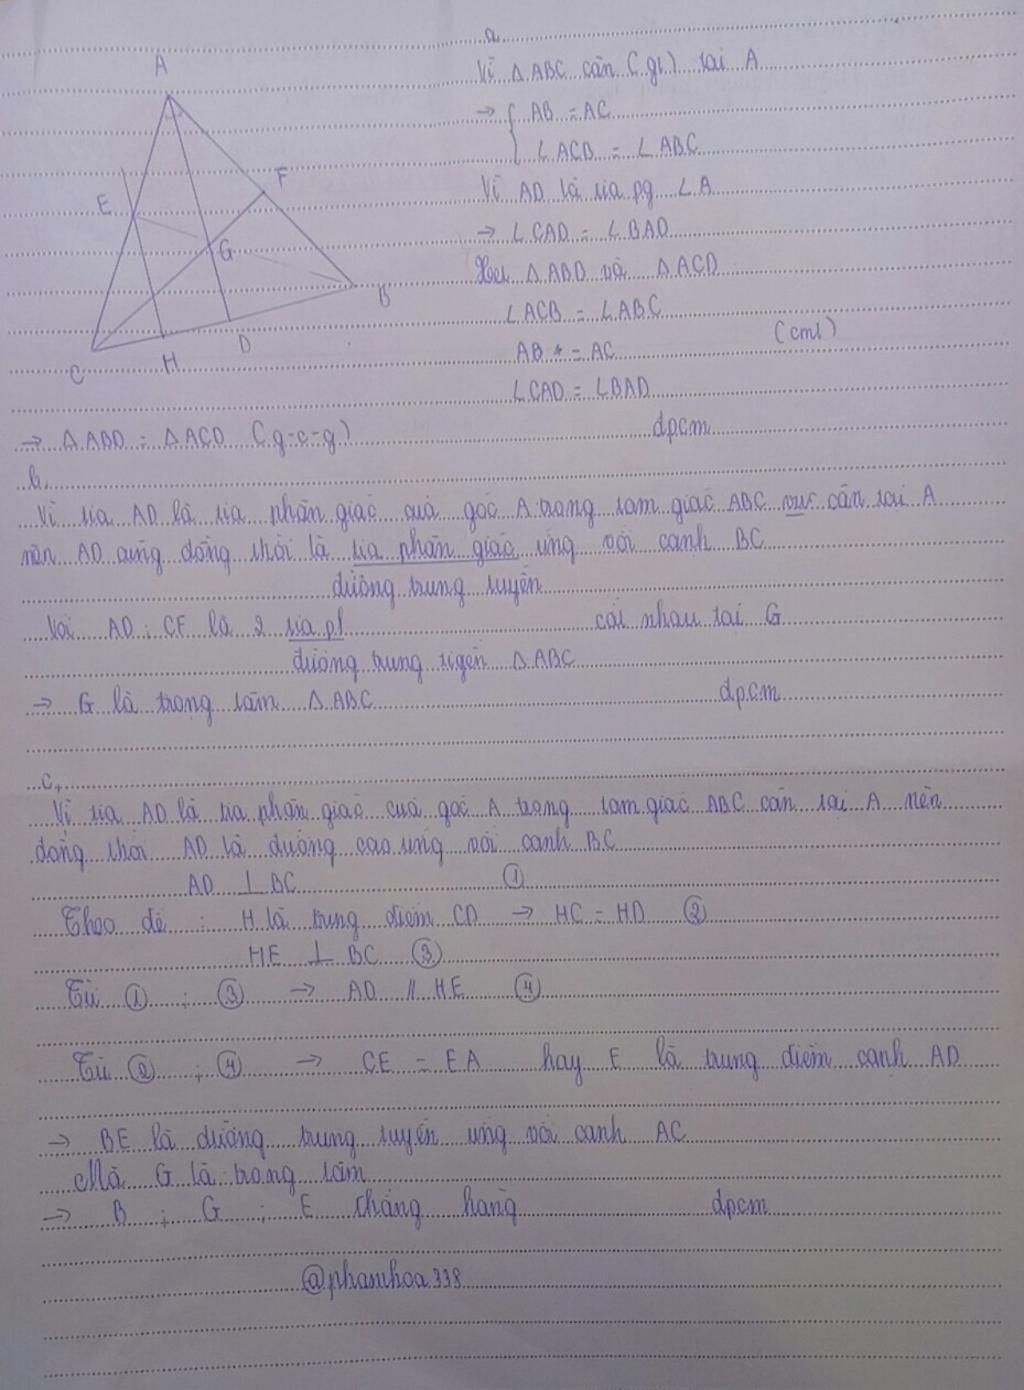 A
E
F
G
B
C
H
D
a.
Vì ΔABC cân (gt) tại A
→ { AB = AC
∠ACB = ∠ABC
Vì AD là tia pg ∠A
→ ∠CAD = ∠BAD
Xét ΔABD và ΔACD
∠ACB = ∠ABC
AB = AC (cmt)
∠CAD = ∠BAD
→ ΔABD = ΔACD (g-c-g) đpcm
b,
Vì tia AD là tia phân giác của góc A trong tam giác ABC cân tại A
nên AD cũng đồng thời là tia phân giác ứng với cạnh BC
đường trung tuyến
Với AD ; CF là 2 tia pt cắt nhau tại G
đường trung tuyến ΔABC
→ G là trọng tâm ΔABC đpcm
c,
Vì tia AD là tia phân giác của góc A trong tam giác ABC cân tại A nên
đồng thời AD là đường cao ứng với cạnh BC
AD ⊥ BC ①
Theo đề : H là trung điểm CD → HC = HD ②
HE ⊥ BC ③
Từ ① ; ③ → AD // HE ④
Từ ② ; ④ → CE = EA hay E là trung điểm cạnh AD
→ BE là đường trung tuyến ứng với cạnh AC
Mà G là trọng tâm
→ B ; G ; E thẳng hàng đpcm
@phamhoa338